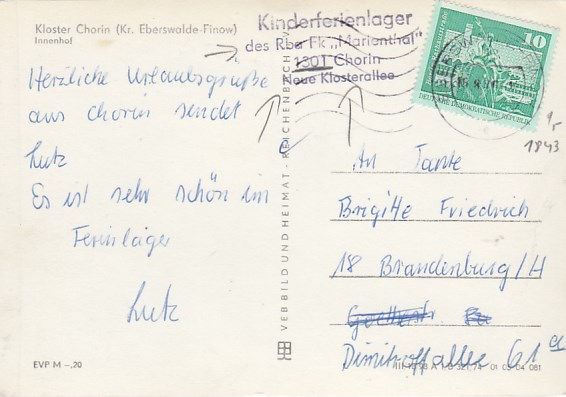 Kloster Chorin (Kr. Eberswalde-Finow)
Innenhof
Kinderferienlager
des Rba Fk „Marienthal"
1301 Chorin
Neue Klosterallee
10
DEUTSCHE DEMOKRATISCHE REPUBLIK
1,-
1843
Herzliche Urlaubsgrüße
aus Chorin sendet
Lutz
Es ist sehr schön im
Ferienlager
Lutz
VEB BILD UND HEIMAT · REICHENBACH
An Tante
Brigitte Friedrich
18 Brandenburg/H
Dimitroffallee 61a
EVP M –,20
01 05 04 081